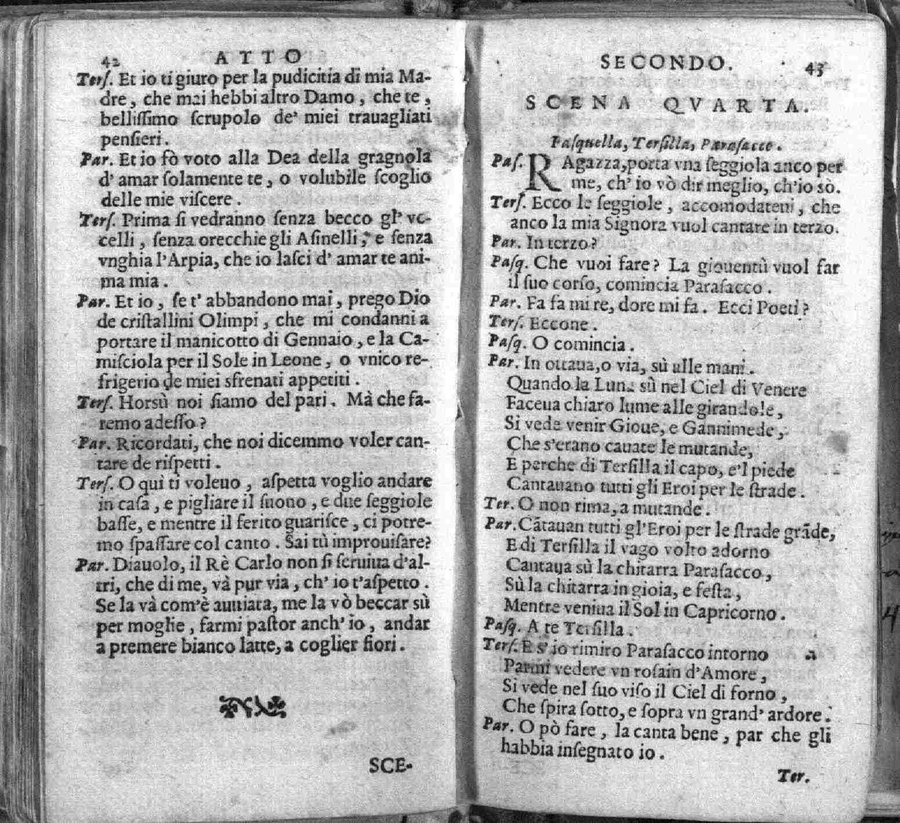 42 ATTO
Terſ. Et io ti giuro per la pudicitia di mia Ma-
dre, che mai hebbi altro Damo, che te,
belliſſimo ſcrupolo de' miei trauagliati
penſieri.
Par. Et io fò voto alla Dea della gragnola
d' amar ſolamente te, o volubile ſcoglio
delle mie viſcere.
Terſ. Prima ſi vedranno ſenza becco gl' vc-
celli, ſenza orecchie gli Aſinelli, e ſenza
vnghia l'Arpia, che io laſci d' amar te ani-
ma mia.
Par. Et io, ſe t' abbandono mai, prego Dio
de criſtallini Olimpi, che mi condanni a
portare il manicotto di Gennaio, e la Ca-
miſciola per il Sole in Leone, o vnico re-
frigerio de miei sfrenati appetiti.
Terſ. Horsù noi ſiamo del pari. Mà che fa-
remo adeſſo?
Par. Ricordati, che noi dicemmo voler can-
tare de riſpetti.
Terſ. O qui ti voleuo, aſpetta voglio andare
in caſa, e pigliare il ſuono, e due ſeggiole
baſſe, e mentre il ferito guariſce, ci potre-
mo ſpaſſare col canto. Sai tù improuiſare?
Par. Diauolo, il Rè Carlo non ſi ſeruiua d'al-
tri, che di me, và pur via, ch' io t'aſpetto.
Se la và com'è auuiata, me la vò beccar sù
per moglie, farmi paſtor anch' io, andar
a premere bianco latte, a coglier fiori.
SCE-
SECONDO. 43
SCENA QVARTA.
Paſquella, Terſilla, Paraſacco.
Paſ. RAgazza, porta vna ſeggiola anco per
me, ch' io vò dir meglio, ch'io sò.
Terſ. Ecco le ſeggiole, accomodateui, che
anco la mia Signora vuol cantare in terzo.
Par. In terzo?
Paſq. Che vuoi fare? La giouentù vuol far
il ſuo corſo, comincia Paraſacco.
Par. Fa fa mi re, do re mi fa. Ecci Poeti?
Terſ. Eccone.
Paſq. O comincia.
Par. In ottaua, o via, sù alle mani.
Quando la Luna sù nel Ciel di Venere
Faceua chiaro lume alle girandole,
Si vede venir Gioue, e Gannimede,
Che s'erano cauate le mutande,
E perche di Terſilla il capo, e'l piede
Cantauano tutti gli Eroi per le ſtrade.
Ter. O non rima, a mutande.
Par. Cātauan tutti gl'Eroi per le ſtrade grāde,
E di Terſilla il vago volto adorno
Cantaua sù la chitarra Paraſacco,
Sù la chitarra in gioia, e feſta,
Mentre veniua il Sol in Capricorno.
Paſq. A te Terſilla.
Terſ. E s' io rimiro Paraſacco intorno
Parmi vedere vn roſain d'Amore,
Si vede nel ſuo viſo il Ciel di forno,
Che ſpira ſotto, e ſopra vn grand' ardore.
Par. O pò fare, la canta bene, par che gli
habbia inſegnato io.
Ter.